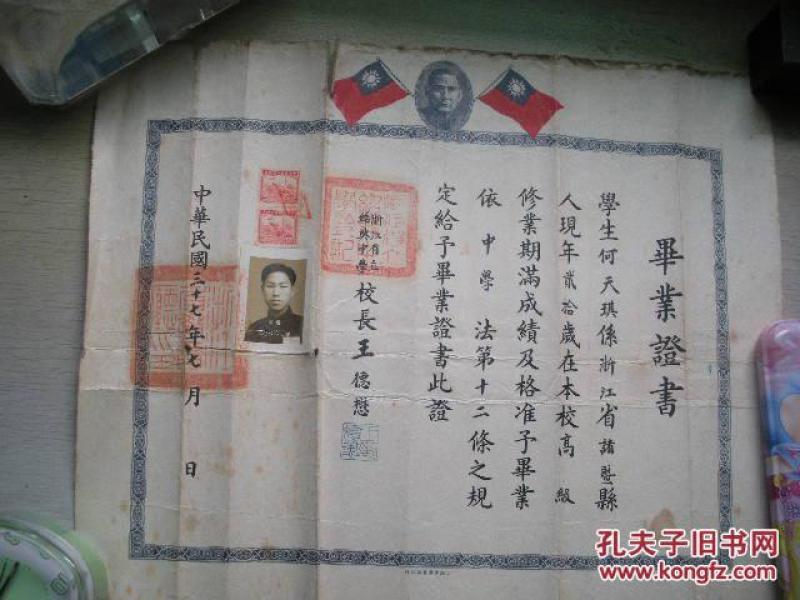 畢業證書
學生何天琪係浙江省諸暨縣
人現年貳拾歲在本校高級
修業期滿成績及格准予畢業
依中學法第十二條之規
定給予畢業證書此證
浙江省立
紹興中學
校長王德懋
中華民國三十七年七月 日
孔夫子旧书网
www.kongfz.com